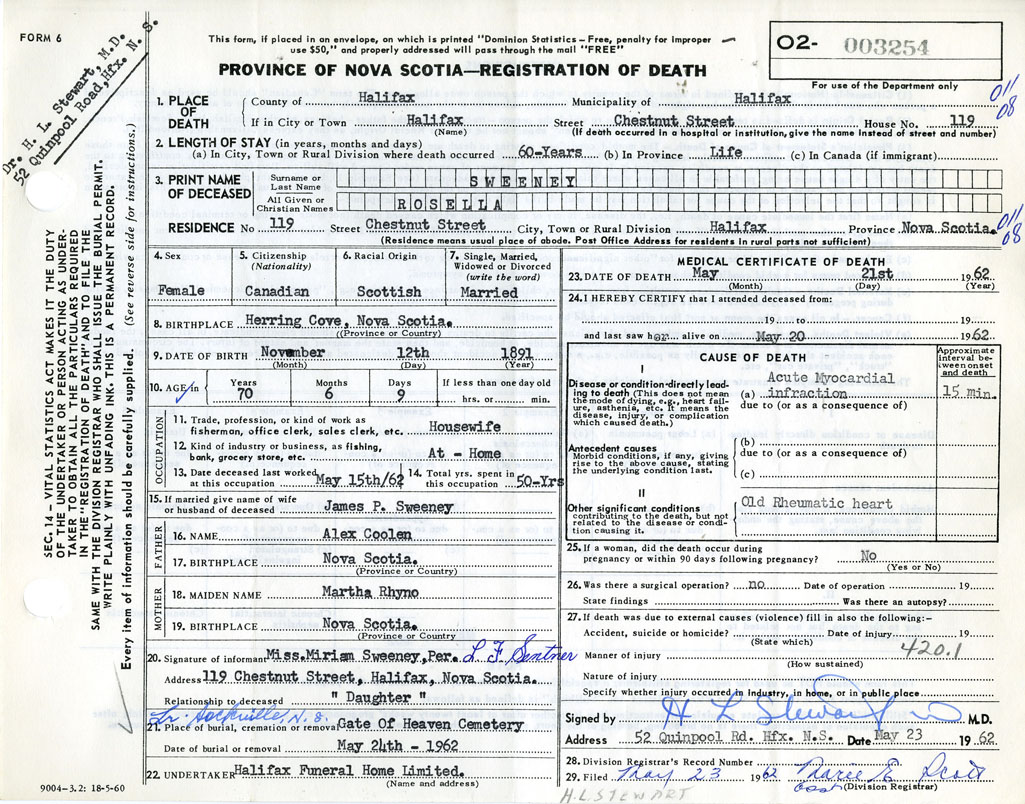 FORM 6
Dr. H. L. Stewart, M.D.
52 Quinpool Road, Hfx. N. S.
This form, if placed in an envelope, on which is printed "Dominion Statistics – Free, penalty for improper
use $50," and properly addressed will pass through the mail "FREE"
PROVINCE OF NOVA SCOTIA—REGISTRATION OF DEATH
O2- 003254
For use of the Department only
011
08
1. PLACE OF DEATH
County of Halifax Municipality of Halifax
If in City or Town Halifax Street Chestnut Street House No. 119
(Name) (If death occurred in a hospital or institution, give the name instead of street and number)
2. LENGTH OF STAY (in years, months and days)
(a) In City, Town or Rural Division where death occurred 60-Years (b) In Province Life (c) In Canada (if immigrant)
3. PRINT NAME OF DECEASED
Surname or Last Name SWEENEY
All Given or Christian Names ROSELLA
RESIDENCE No 119 Street Chestnut Street City, Town or Rural Division Halifax Province Nova Scotia.
011
08
(Residence means usual place of abode. Post Office Address for residents in rural parts not sufficient)
4. Sex
Female
5. Citizenship
(Nationality)
Canadian
6. Racial Origin
Scottish
7. Single, Married, Widowed or Divorced
(write the word)
Married
8. BIRTHPLACE Herring Cove, Nova Scotia.
(Province or Country)
9. DATE OF BIRTH November 12th 1891
(Month) (Day) (Year)
10. AGE in Years Months Days If less than one day old
70 6 9 hrs. or min.
OCCUPATION
11. Trade, profession, or kind of work as
fisherman, office clerk, sales clerk, etc. Housewife
12. Kind of industry or business, as fishing,
bank, grocery store, etc. At - Home
13. Date deceased last worked at this occupation May 15th/62 14. Total yrs. spent in this occupation 50-Yrs
15. If married give name of wife
or husband of deceased James P. Sweeney
FATHER
16. NAME Alex Coolen
17. BIRTHPLACE Nova Scotia.
(Province or Country)
MOTHER
18. MAIDEN NAME Martha Rhyno
19. BIRTHPLACE Nova Scotia.
(Province or Country
20. Signature of informant Miss. Miriam Sweeney, Per. L F Sentner
Address 119 Chestnut Street, Halifax, Nova Scotia.
Relationship to deceased " Daughter "
Lr. Sackville, N. S.
21. Place of burial, cremation or removal Gate Of Heaven Cemetery
Date of burial or removal May 24th - 1962
22. UNDERTAKER Halifax Funeral Home Limited.
(Name and address)
9004-3.2: 18-5-60
MEDICAL CERTIFICATE OF DEATH
23. DATE OF DEATH May 21st 1962
(Month) (Day) (Year)
24. I HEREBY CERTIFY that I attended deceased from:
19 to 19
and last saw her alive on May 20 1962
CAUSE OF DEATH
Approximate interval between onset and death
I
Disease or condition directly leading to death (This does not mean the mode of dying, e.g., heart failure, asthenia, etc. It means the disease, injury, or complication which caused death.)
Acute Myocardial
(a) infraction 15 min.
due to (or as a consequence of)
Antecedent causes
Morbid conditions, if any, giving rise to the above cause, stating the underlying condition last.
(b)
due to (or as a consequence of)
(c)
II
Other significant conditions
contributing to the death, but not related to the disease or condition causing it.
Old Rheumatic heart
25. If a woman, did the death occur during
pregnancy or within 90 days following pregnancy? No
(Yes or No)
26. Was there a surgical operation? no Date of operation 19
State findings Was there an autopsy?
27. If death was due to external causes (violence) fill in also the following:–
Accident, suicide or homicide? Date of injury 19
(State which)
420.1
Manner of injury
(How sustained)
Nature of injury
Specify whether injury occurred in industry, in home, or in public place
Signed by H L Stewart M.D.
Address 52 Quinpool Rd. Hfx. N.S. Date May 23 1962
28. Division Registrar's Record Number
29. Filed May 23 1962 Marie E Scott
(Division Registrar)
H.L. STEWART
SEC. 14 – VITAL STATISTICS ACT MAKES IT THE DUTY
OF THE UNDERTAKER OR PERSON ACTING AS UNDER-
TAKER TO OBTAIN ALL THE PARTICULARS REQUIRED
IN THE "REGISTRATION OF DEATH" AND TO FILE THE
SAME WITH THE DIVISION REGISTRAR WHO SHALL ISSUE THE BURIAL PERMIT.
WRITE PLAINLY WITH UNFADING INK. THIS IS A PERMANENT RECORD.
Every item of information should be carefully supplied. (See reverse side for instructions.)